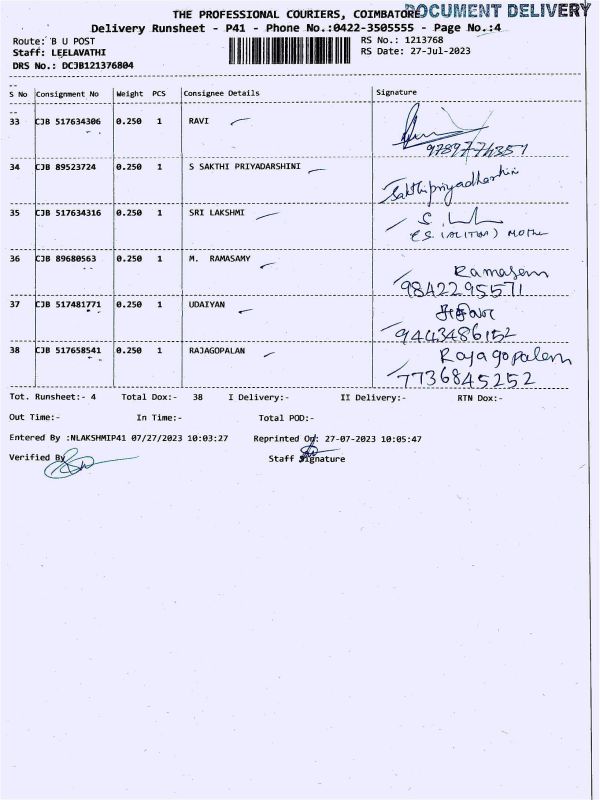 THE PROFESSIONAL COURIERS, COIMBATORE DOCUMENT DELIVERY
Delivery Runsheet - P41 - Phone No.:0422-3505555 - Page No.:4
Route: B U POST RS No.: 1213768
Staff: LEELAVATHI RS Date: 27-Jul-2023
DRS No.: DCJB121376804
S No Consignment No Weight PCS Consignee Details Signature
33 CJB 517634306 0.250 1 RAVI
34 CJB 89523724 0.250 1 S SAKTHI PRIYADARSHINI
Sakthipriyadharshini
35 CJB 517634316 0.250 1 SRI LAKSHMI
36 CJB 89680563 0.250 1 M. RAMASAMY
9842295571
37 CJB 517481771 0.250 1 UDAIYAN
9443486152
38 CJB 517658541 0.250 1 RAJAGOPALAN Rajagopalan
7736845252
Tot. Runsheet:- 4 Total Dox:- 38 I Delivery:- II Delivery:- RTN Dox:-
Out Time:- In Time:- Total POD:-
Entered By :NLAKSHMIP41 07/27/2023 10:03:27 Reprinted On: 27-07-2023 10:05:47
Verified By Staff Signature